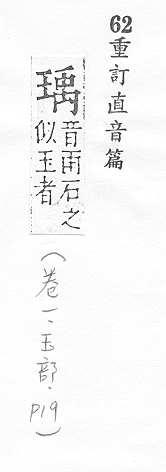 62重訂直音篇
瑀
音雨石之
似玉者
(卷一、玉部、P19)